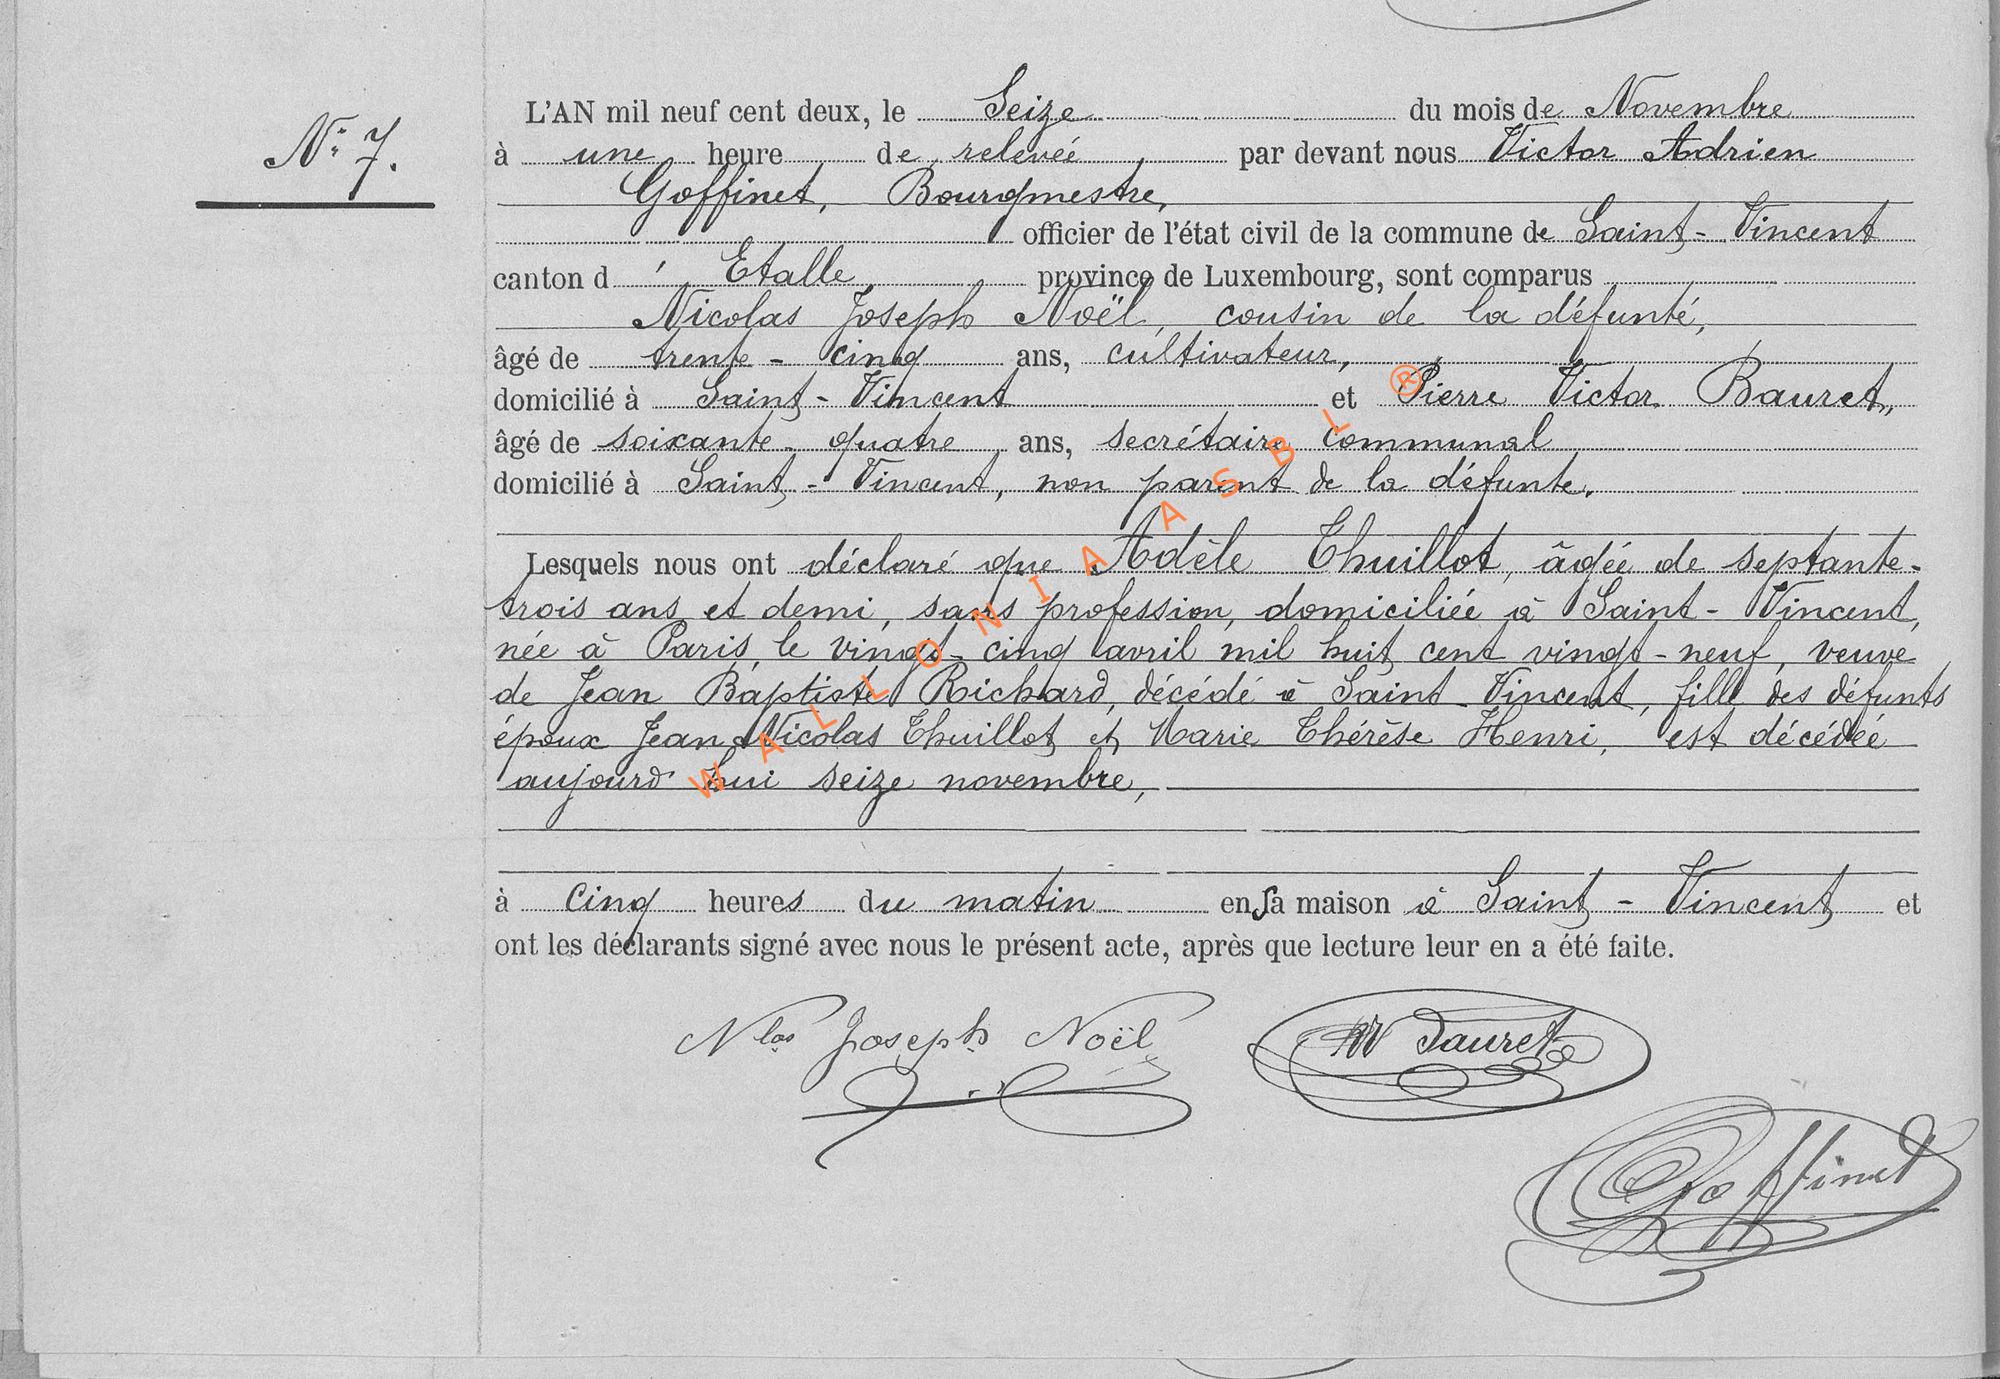 N° 7.
L'AN mil neuf cent deux, le Seize du mois de Novembre
à une heure de relevée, par devant nous Victor Adrien
Goffinet, Bourgmestre,
officier de l'état civil de la commune de Saint-Vincent
canton d'Etalle, province de Luxembourg, sont comparus
Nicolas Joseph Noël, cousin de la défunte,
âgé de trente-cinq ans, cultivateur,
domicilié à Saint-Vincent et Pierre Victor Bauret,
âgé de soixante-quatre ans, secrétaire communal
domicilié à Saint-Vincent, non parent de la défunte.
Lesquels nous ont déclaré que Adèle Thuillot, âgée de septante-
trois ans et demi, sans profession, domiciliée à Saint-Vincent,
née à Paris, le vingt-cinq avril mil huit cent vingt-neuf, veuve
de Jean Baptiste Richard, décédé à Saint-Vincent, fille des défunts
époux Jean Nicolas Thuillot et Marie Thérèse Henri, est décédée
aujourd'hui seize novembre,
à cinq heures du matin en sa maison à Saint-Vincent et
ont les déclarants signé avec nous le présent acte, après que lecture leur en a été faite.
Nlas Joseph Noël Bauret
Goffinet
WALLONIA ASBL ®